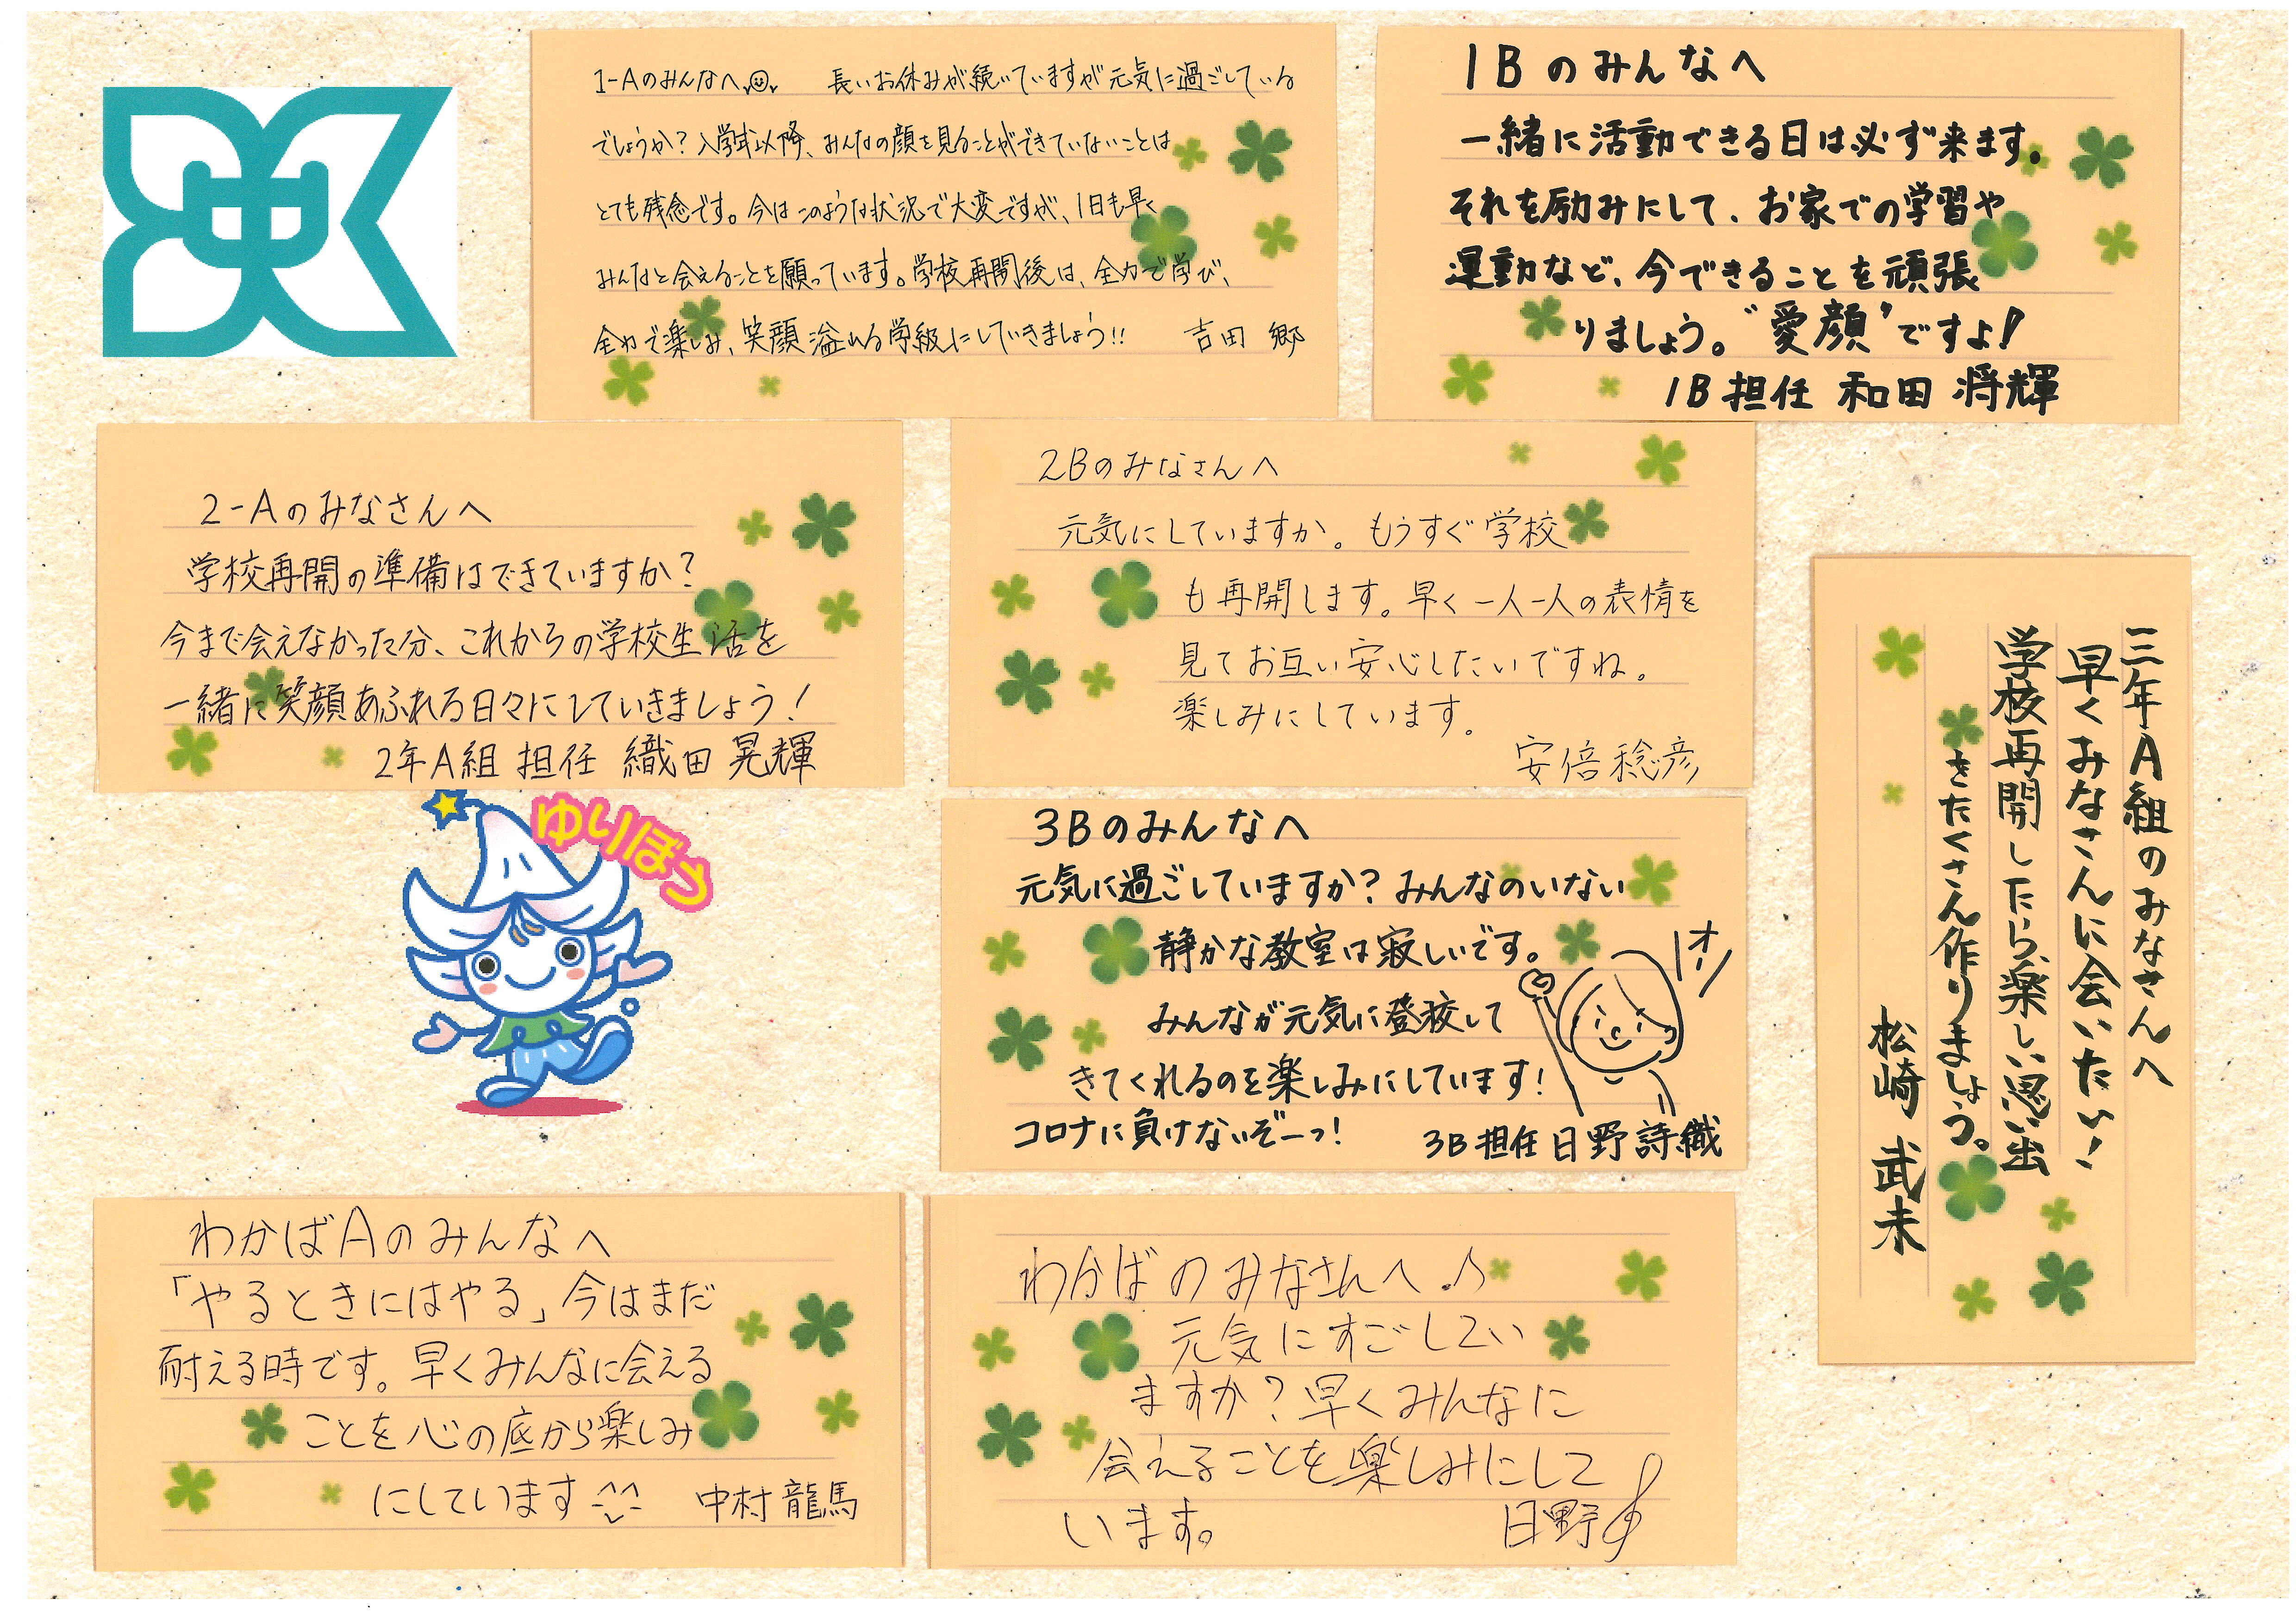 1-Aのみんなへ 長いお休みが続いていますが元気に過ごしている
でしょうか？入学式以降、みんなの顔を見ることができていないことは
とても残念です。今はこのような状況で大変ですが、1日も早く
みんなと会えることを願っています。学校再開後は、全力で学び、
全力で楽しみ、笑顔溢れる学級にしていきましょう!! 吉田 郷
1Bのみんなへ
一緒に活動できる日は必ず来ます。
それを励みにして、お家での学習や
運動など、今できることを頑張
りましょう。"愛顔"ですよ!
1B担任 和田 将輝
2-Aのみなさんへ
学校再開の準備はできていますか？
今まで会えなかった分、これからの学校生活を
一緒に笑顔あふれる日々にしていきましょう！
2年A組 担任 織田 晃輝
2Bのみなさんへ
元気にしていますか。もうすぐ学校
も再開します。早く一人一人の表情を
見てお互い安心したいですね。
楽しみにしています。
安倍稔彦
三年A組のみなさんへ
早くみなさんに会いたい！
学校再開したら、楽しい思い出
をたくさん作りましょう。
松崎 武未
ゆりぼう
3Bのみんなへ
元気に過ごしていますか？みんなのいない
静かな教室は寂しいです。
みんなが元気に登校して
きてくれるのを楽しみにしています！
コロナに負けないぞーっ！
オー
3B担任 日野 詩織
わかばAのみんなへ
「やるときにはやる」今はまだ
耐える時です。早くみんなに会える
ことを心の底から楽しみ
にしています^^ 中村 龍馬
わかばのみなさんへ♪
元気にすごしてい
ますか？早くみんなに
会えることを楽しみにして
います。 日野